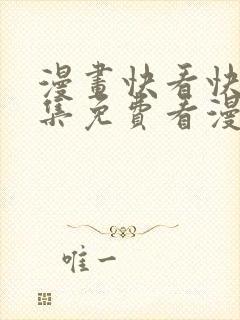 漫畫快看快
集免費看漫
唯一